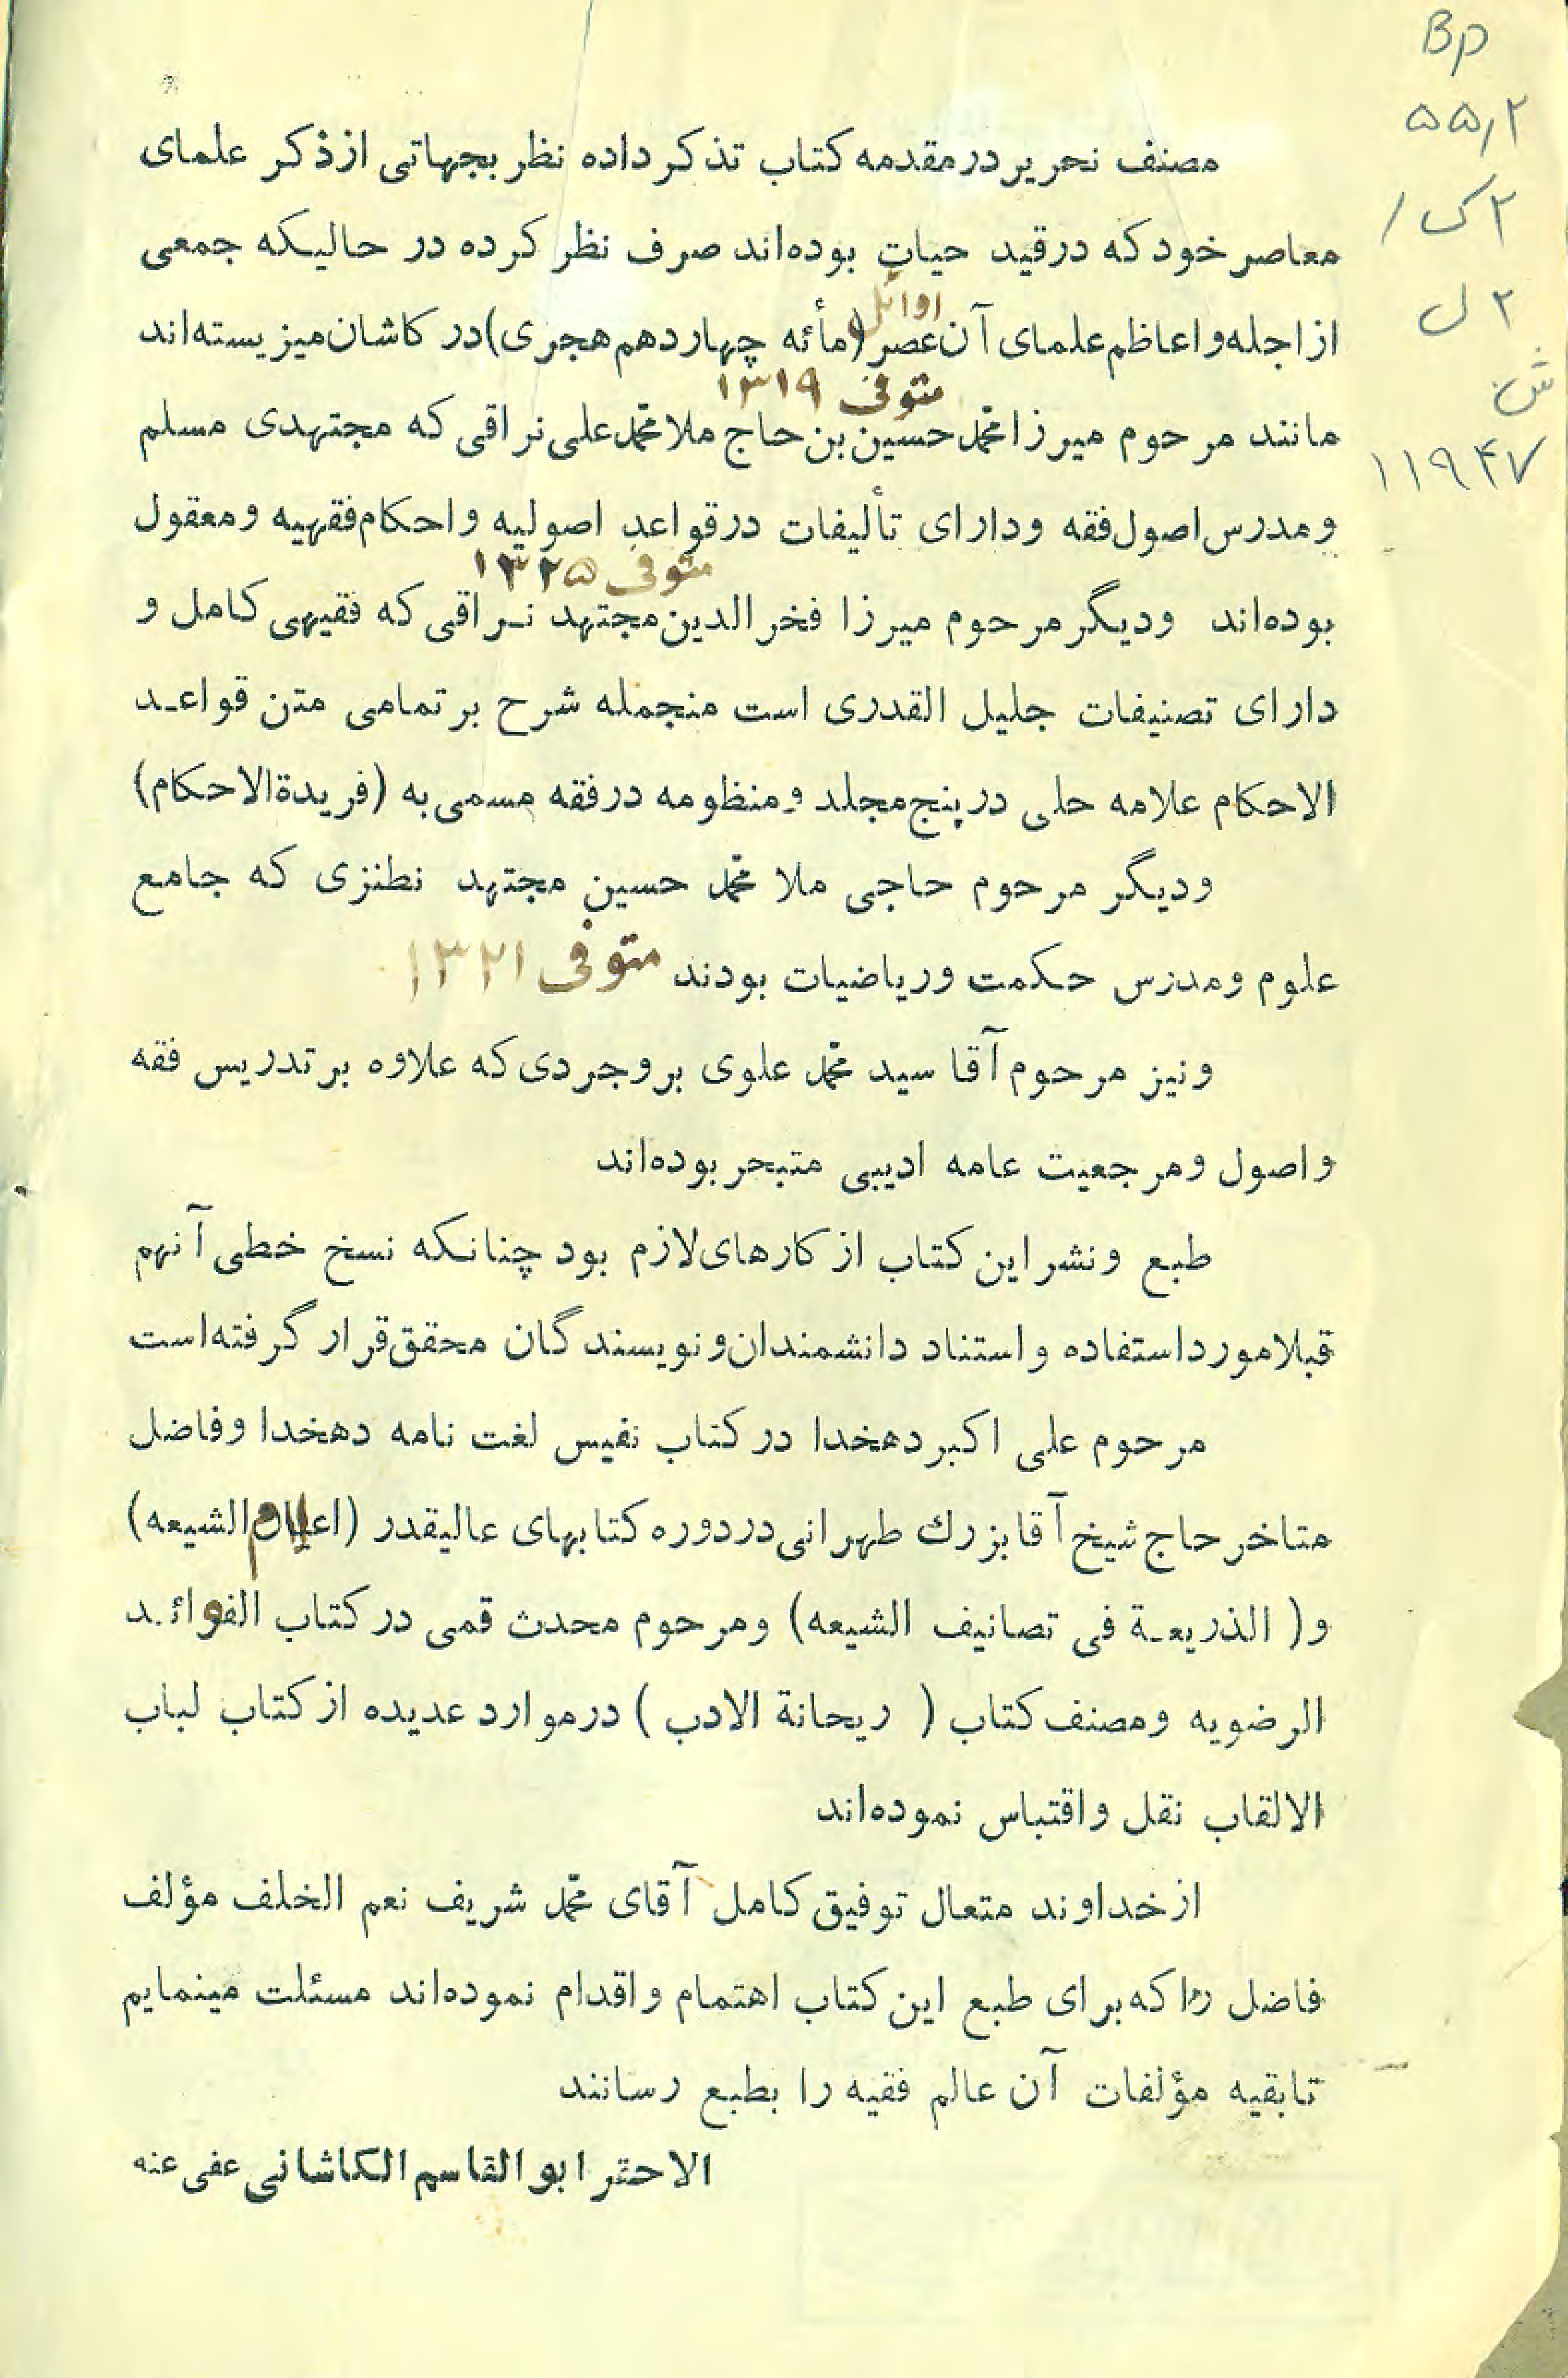 Bp
۵۵٫۲
۲ک/
۲ل
ش
۱۱۹۴۷
مصنف نحریر در مقدمه کتاب تذکر داده نظر بجهاتی از ذکر علمای
معاصر خود که در قید حیات بوده‌اند صرف نظر کرده در حالیکه جمعی
اوائل
از اجله و اعاظم علمای آن عصر (مأئه چهاردهم هجری) در کاشان میزیسته‌اند
متوفی ۱۳۱۹
مانند مرحوم میرزا محمد حسین بن حاج ملا محمد علی نراقی که مجتهدی مسلم
و مدرس اصول فقه و دارای تألیفات در قواعد اصولیه و احکام فقهیه و معقول
متوفی ۱۳۲۵
بوده‌اند و دیگر مرحوم میرزا فخر الدین مجتهد نراقی که فقیهی کامل و
دارای تصنیفات جلیل القدری است منجمله شرح بر تمامی متن قواعد
الاحکام علامه حلی در پنج مجلد و منظومه در فقه مسمی به (فریدة الاحکام)
و دیگر مرحوم حاجی ملا محمد حسین مجتهد نطنزی که جامع
علوم و مدرس حکمت و ریاضیات بودند متوفی ۱۳۲۱
و نیز مرحوم آقا سید محمد علوی بروجردی که علاوه بر تدریس فقه
و اصول و مرجعیت عامه ادیبی متبحر بوده‌اند
طبع و نشر این کتاب از کارهای لازم بود چنانکه نسخ خطی آنهم
قبلا مورد استفاده و استناد دانشمندان و نویسندگان محقق قرار گرفته است
مرحوم علی اکبر دهخدا در کتاب نفیس لغت نامه دهخدا و فاضل
متاخر حاج شیخ آقا بزرك طهرانی در دوره کتابهای عالیقدر (اعلام الشیعه)
و ( الذریعة فی تصانیف الشیعه) و مرحوم محدث قمی در کتاب الفوائد
الرضویه و مصنف کتاب ( ریحانة الادب ) در موارد عدیده از کتاب لباب
الالقاب نقل و اقتباس نموده‌اند
از خداوند متعال توفیق کامل آقای محمد شریف نعم الخلف مؤلف
فاضل را که برای طبع این کتاب اهتمام و اقدام نموده‌اند مسئلت مینمایم
تا بقیه مؤلفات آن عالم فقیه را بطبع رسانند
الاحقر ابو القاسم الکاشانی عفی عنه